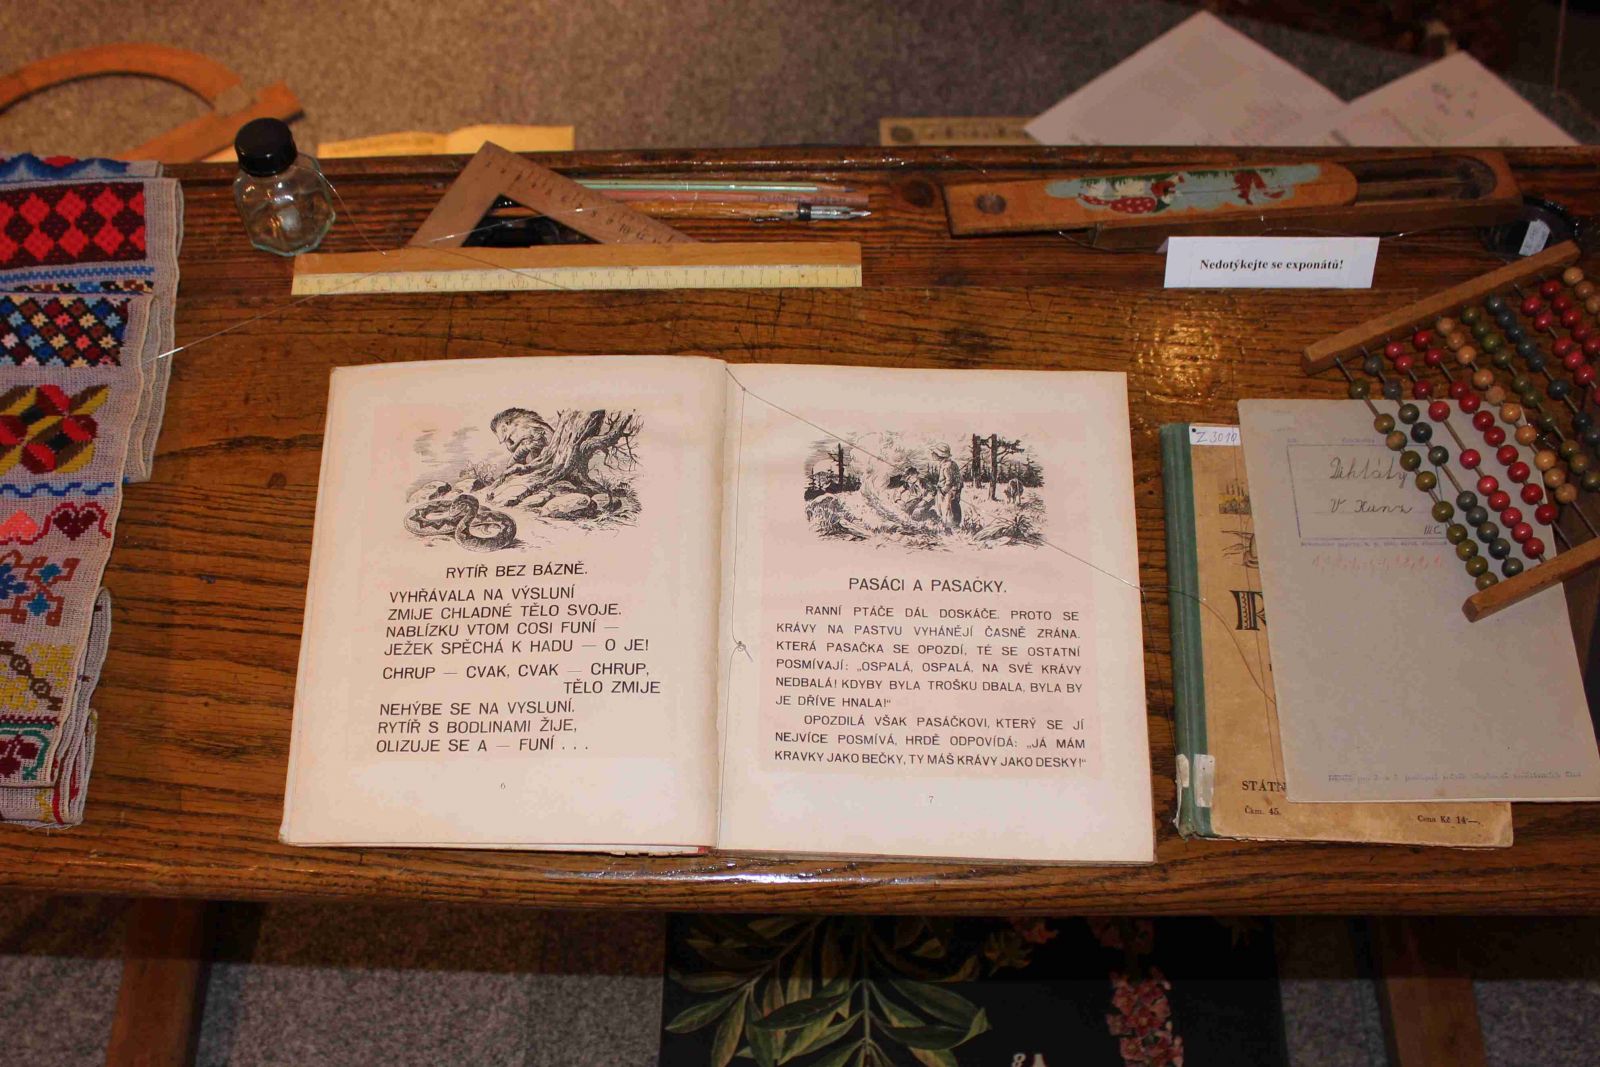 Nedotýkejte se exponátů!
RYTÍŘ BEZ BÁZNĚ.
VYHŘÁVALA NA VÝSLUNÍ
ZMIJE CHLADNÉ TĚLO SVOJE.
NABLÍZKU VTOM COSI FUNÍ —
JEŽEK SPĚCHÁ K HADU — O JE!
CHRUP — CVAK, CVAK — CHRUP,
TĚLO ZMIJE
NEHÝBE SE NA VYSLUNÍ.
RYTÍŘ S BODLINAMI ŽIJE,
OLIZUJE SE A — FUNÍ . . .
6
PASÁCI A PASAČKY.
RANNÍ PTÁČE DÁL DOSKÁČE. PROTO SE
KRÁVY NA PASTVU VYHÁNĚJÍ ČASNĚ ZRÁNA.
KTERÁ PASAČKA SE OPOZDÍ, TÉ SE OSTATNÍ
POSMÍVAJÍ: „OSPALÁ, OSPALÁ, NA SVÉ KRÁVY
NEDBALÁ! KDYBY BYLA TROŠKU DBALA, BYLA BY
JE DŘÍVE HNALA!“
OPOZDILÁ VŠAK PASÁČKOVI, KTERÝ SE JÍ
NEJVÍCE POSMÍVÁ, HRDĚ ODPOVÍDÁ: „JÁ MÁM
KRAVKY JAKO BEČKY, TY MÁŠ KRÁVY JAKO DESKY!“
7
Z 3010
Diktáty
III.C
STÁTN
Čkm. 45.
Cena Kč 14·—,